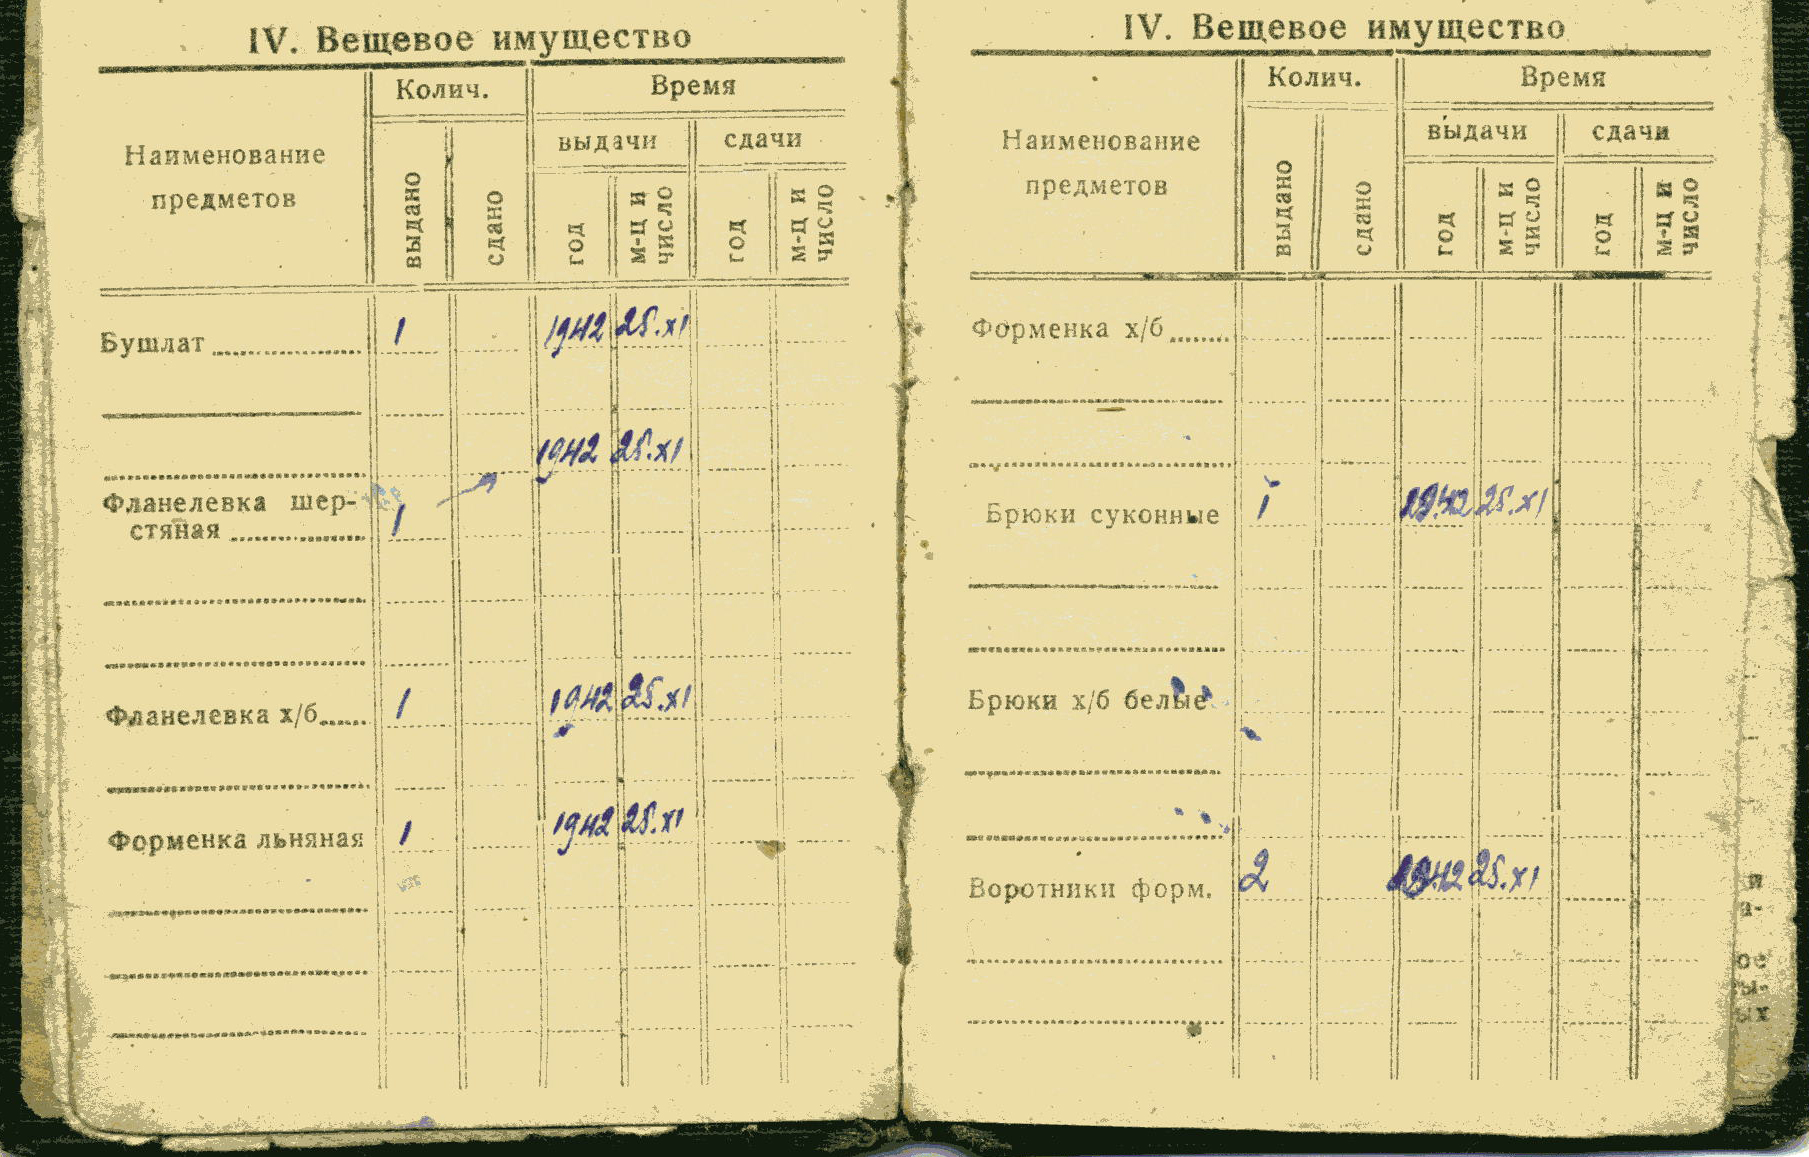 IV. Вещевое имущество
Наименование
предметов
Колич.
Время
выдачи
сдачи
выдано
сдано
год
м-ц и
число
год
м-ц и
число
Бушлат 1 1942 25.XI
1942 25.XI
Фланелевка шер-
стяная 1
Фланелевка х/б 1 1942 25.XI
Форменка льняная 1 1942 25.XI
IV. Вещевое имущество
Наименование
предметов
Колич.
Время
выдачи
сдачи
выдано
сдано
год
м-ц и
число
год
м-ц и
число
Форменка х/б
Брюки суконные 1 1942 25.XI
Брюки х/б белые
Воротники форм. 2 1942 25.XI
и
а-
ое
ы-
ых